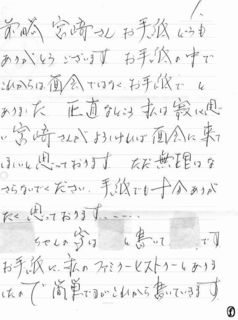 1.
前略 宮﨑さん お手紙いつも
ありがとうございます お手紙の中で
これからは面会ではなくお手紙で と
ありました 正直なところ私は寂しく思
い宮﨑さんがよろしければ面会に来て
ほしいと思っております ただ無理はな
さらないでください. 手紙でも十分ありが
たく思っております......
ちゃんの字は と書いて です
お手紙に私のファミリーヒストリーとありま
したので 簡単ですがこれから書いていきます
①